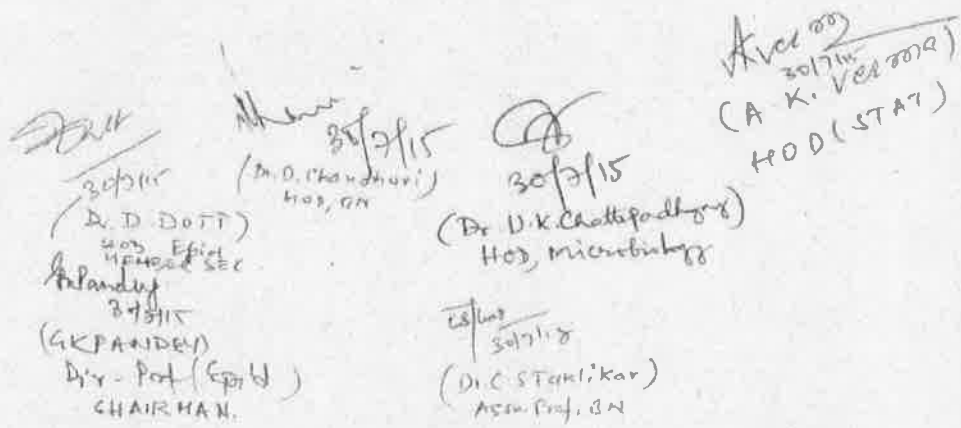 30/7/15
(Dr. D. DUTT)
HOD Epid
MEMBER SEC
30/7/15
(Dr. D. Chaudhuri)
HOD, BN
30/7/15
(Dr. U.K. Chattopadhyay)
HOD, Microbiology
AVerma
30/7/15
(A K. Verma)
HOD (STAT)
GKPandey
30/7/15
(GKPANDEY)
Dir-Prof (Epid)
CHAIRMAN.
30/7/15
(Dr. C S Taklikar)
Asso. Prof, BN